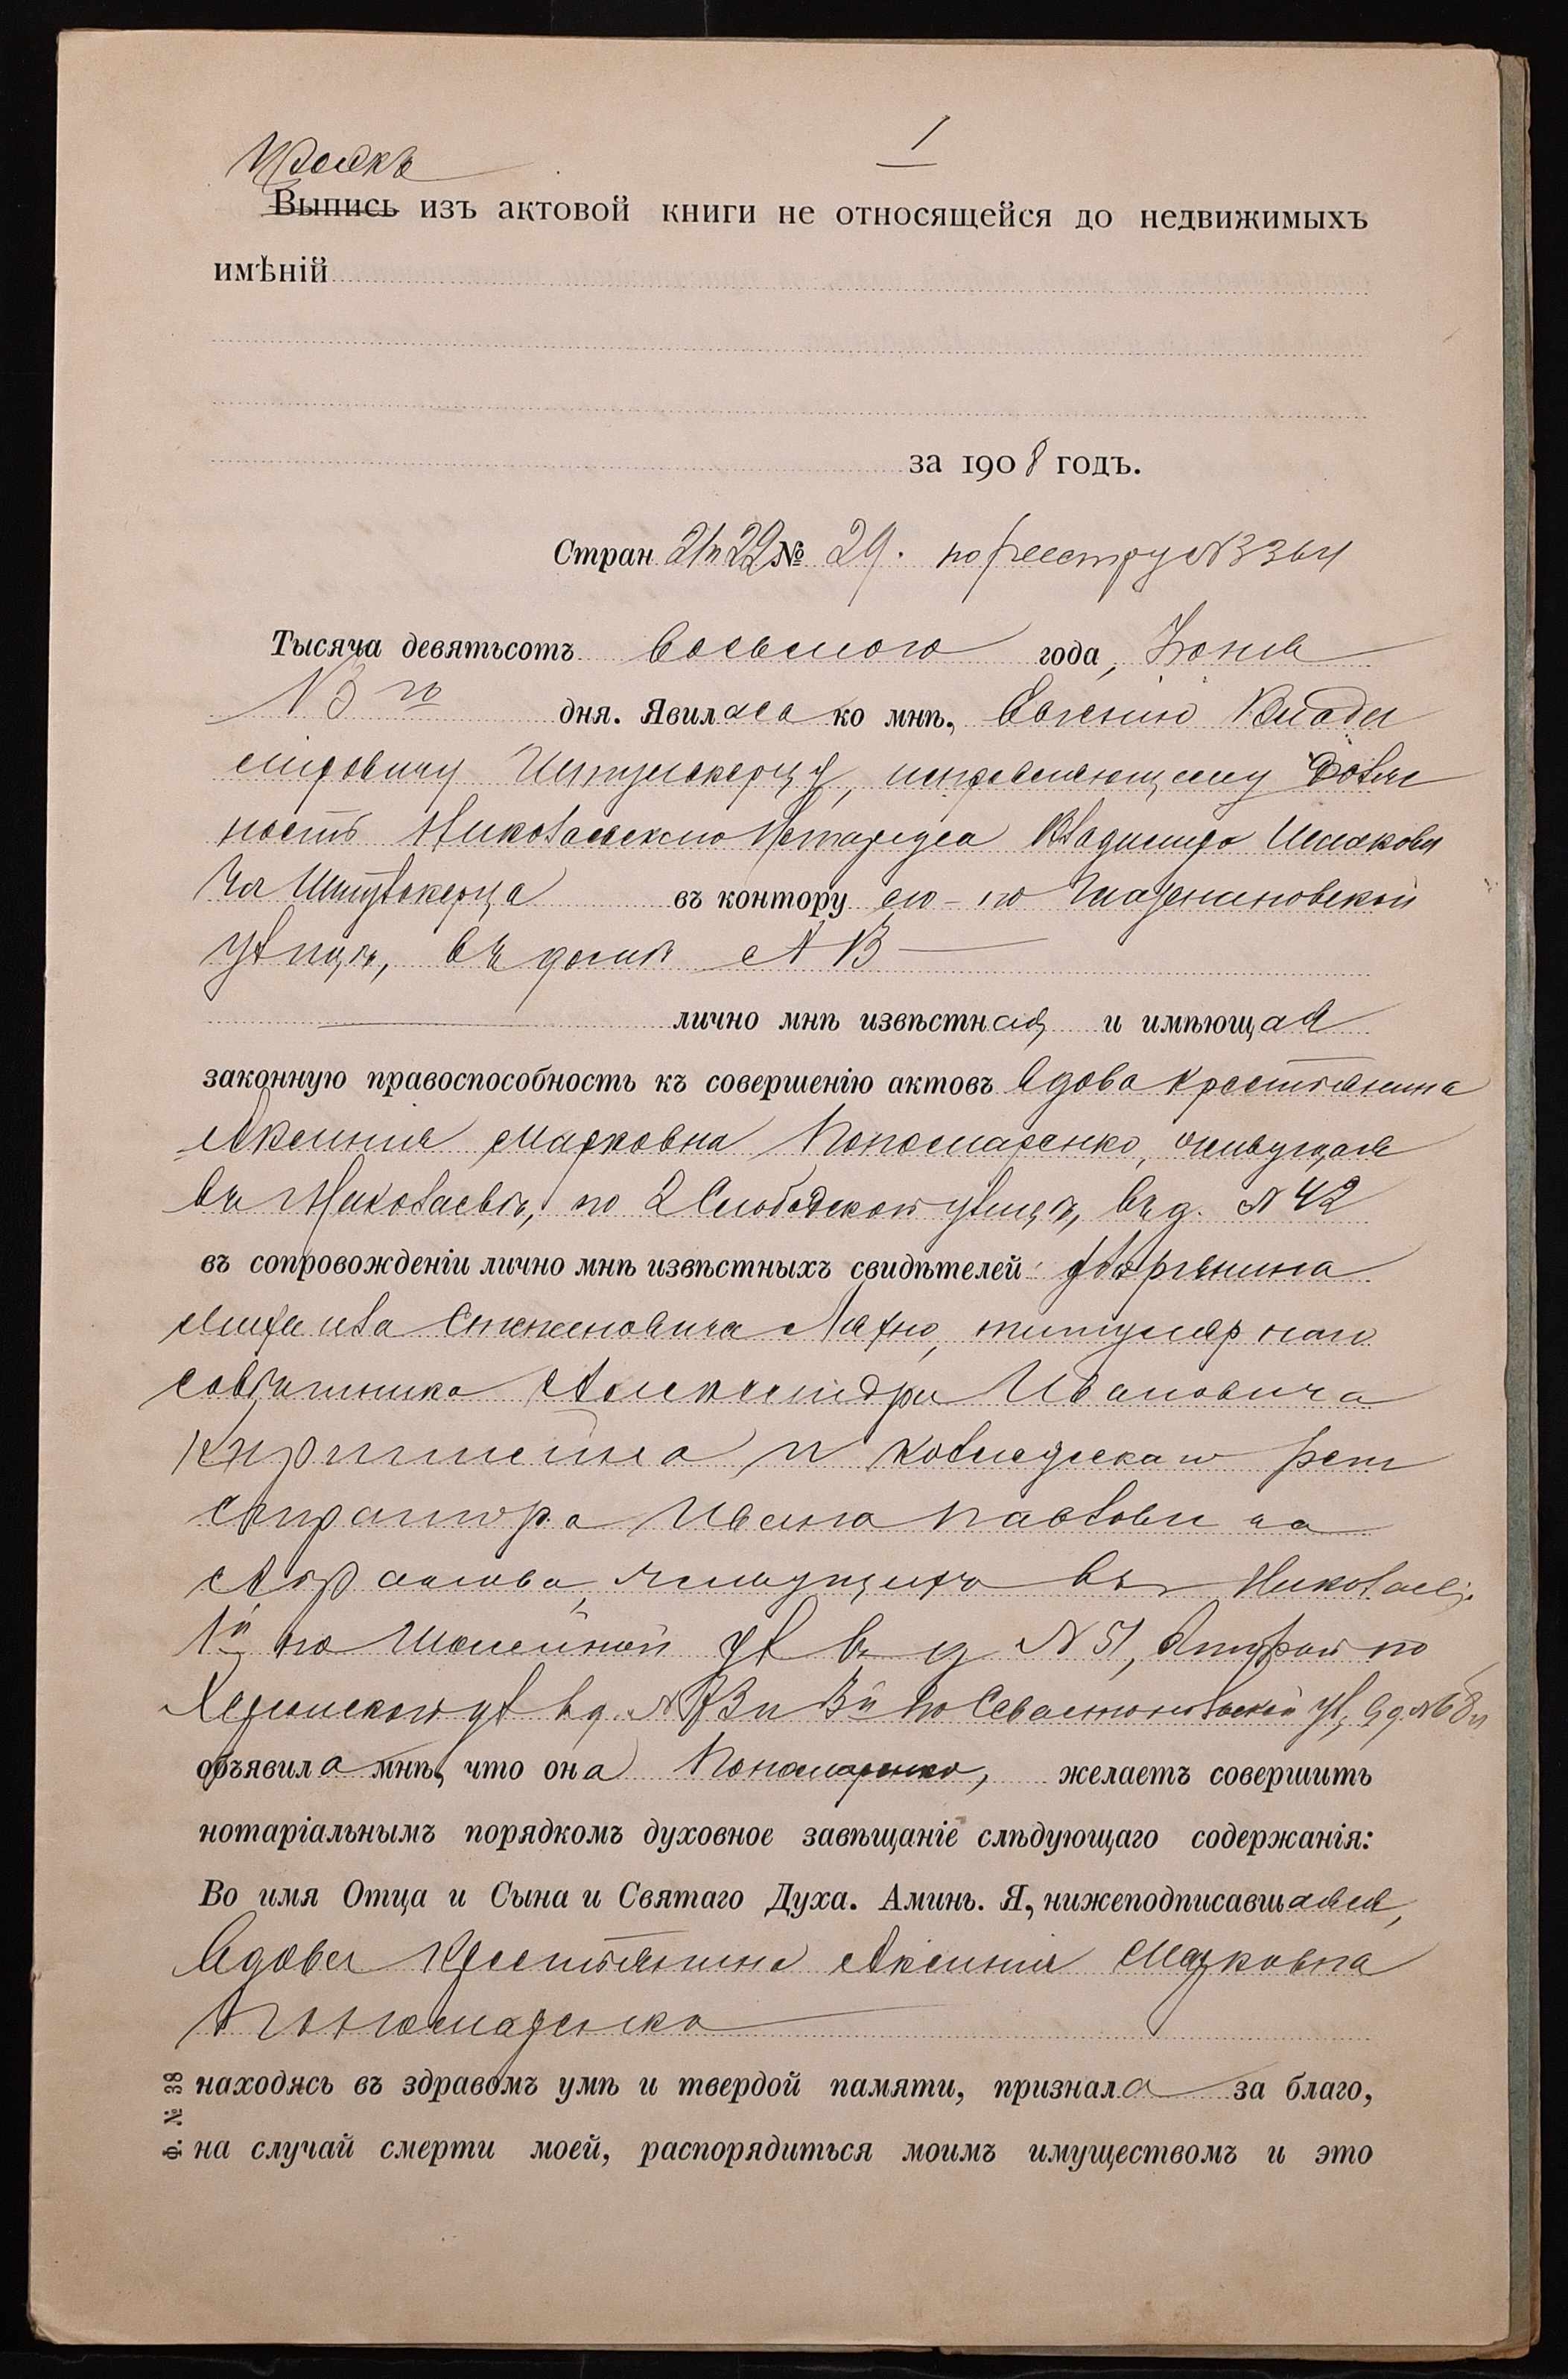 1
Выпись изъ актовой книги не относящейся до недвижимыхъ
имѣній
за 1908 годъ.
Стран 21 и 22 № 29. по реестру № 3364
Тысяча девятьсотъ восьмого года, Іюня
го дня. Явилася ко мнѣ, Евгенію Влади
міровичу исправляющему должн
ность Николаевскаго Нотаріуса Владиміра Исааковича
въ контору его - по
улицѣ, въ домѣ №
лично мнѣ извѣстная и имѣющая
законную правоспособность къ совершенію актовъ вдова крестьянина
Аксинія Марковна Пономаренко, живущая
въ Николаевѣ, по 2 Слободской улицѣ, въ д. № 42
въ сопровожденіи лично мнѣ извѣстныхъ свидѣтелей: дворянина
Михаила Степановича Махно, титулярнаго
совѣтника Александра Ивановича
и коллежскаго реги
стратора Ивана Павлови ча
Абрамова, живущихъ въ Николаевѣ:
1й по ул въ д № 51, второй по
Херсонской ул въ д. № 73 и 3й по Севастопольской ул, въ д. № 68 и
объявила мнѣ, что она Пономаренко, желаетъ совершить
нотаріальнымъ порядкомъ духовное завѣщаніе слѣдующаго содержанія:
Во имя Отца и Сына и Святаго Духа. Аминь. Я, нижеподписавшаяся,
вдова крестьянина Аксинія Марковна
Пономаренко
находясь въ здравомъ умѣ и твердой памяти, признала за благо,
на случай смерти моей, распорядиться моимъ имуществомъ и это
Ф. № 38